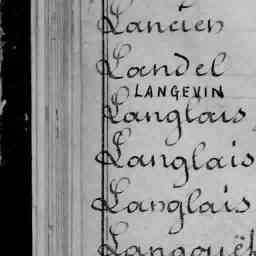 Lancien
Landel
LANGEVIN
Langlais
Langlais
Langlais
Langouët